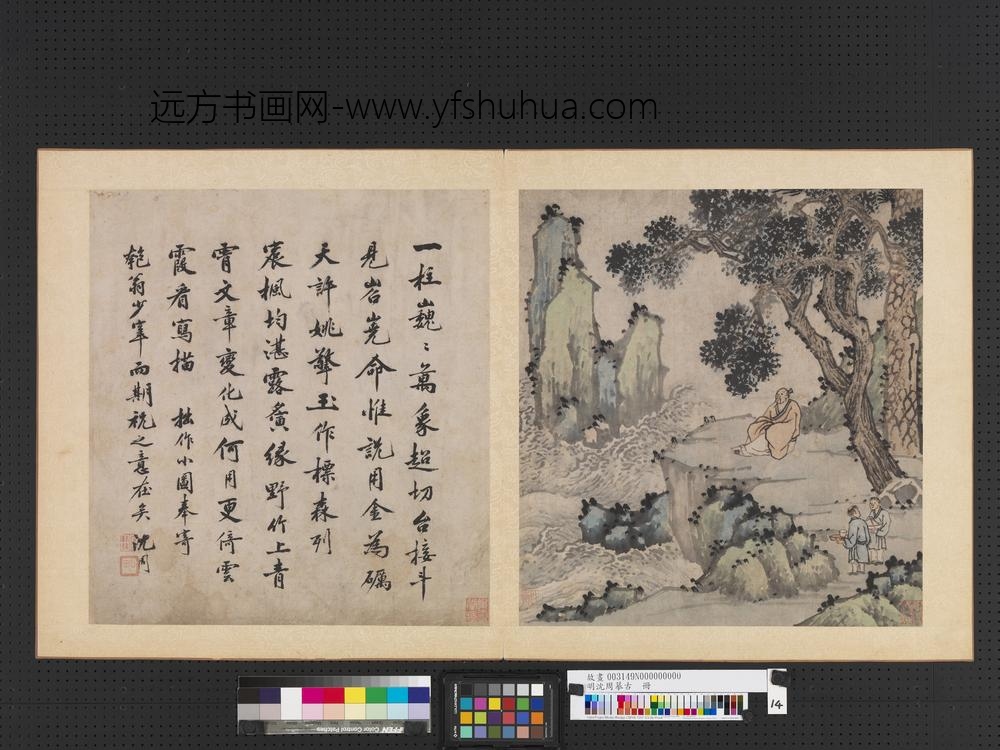 远方书画网-www.yfshuhua.com
一柱巍〻萬象超切台接斗
見岧嶤命惟說用金為礪
天許姚擎玉作標森列
宸楓均湛露
緣野竹上青
霄文章變化成何用更倚雲
霞看寫描 拙作小圖奉寄
匏翁少宰而期祝之意在矣沈周
故畫 003149N000000000
明沈周摹古 冊
14